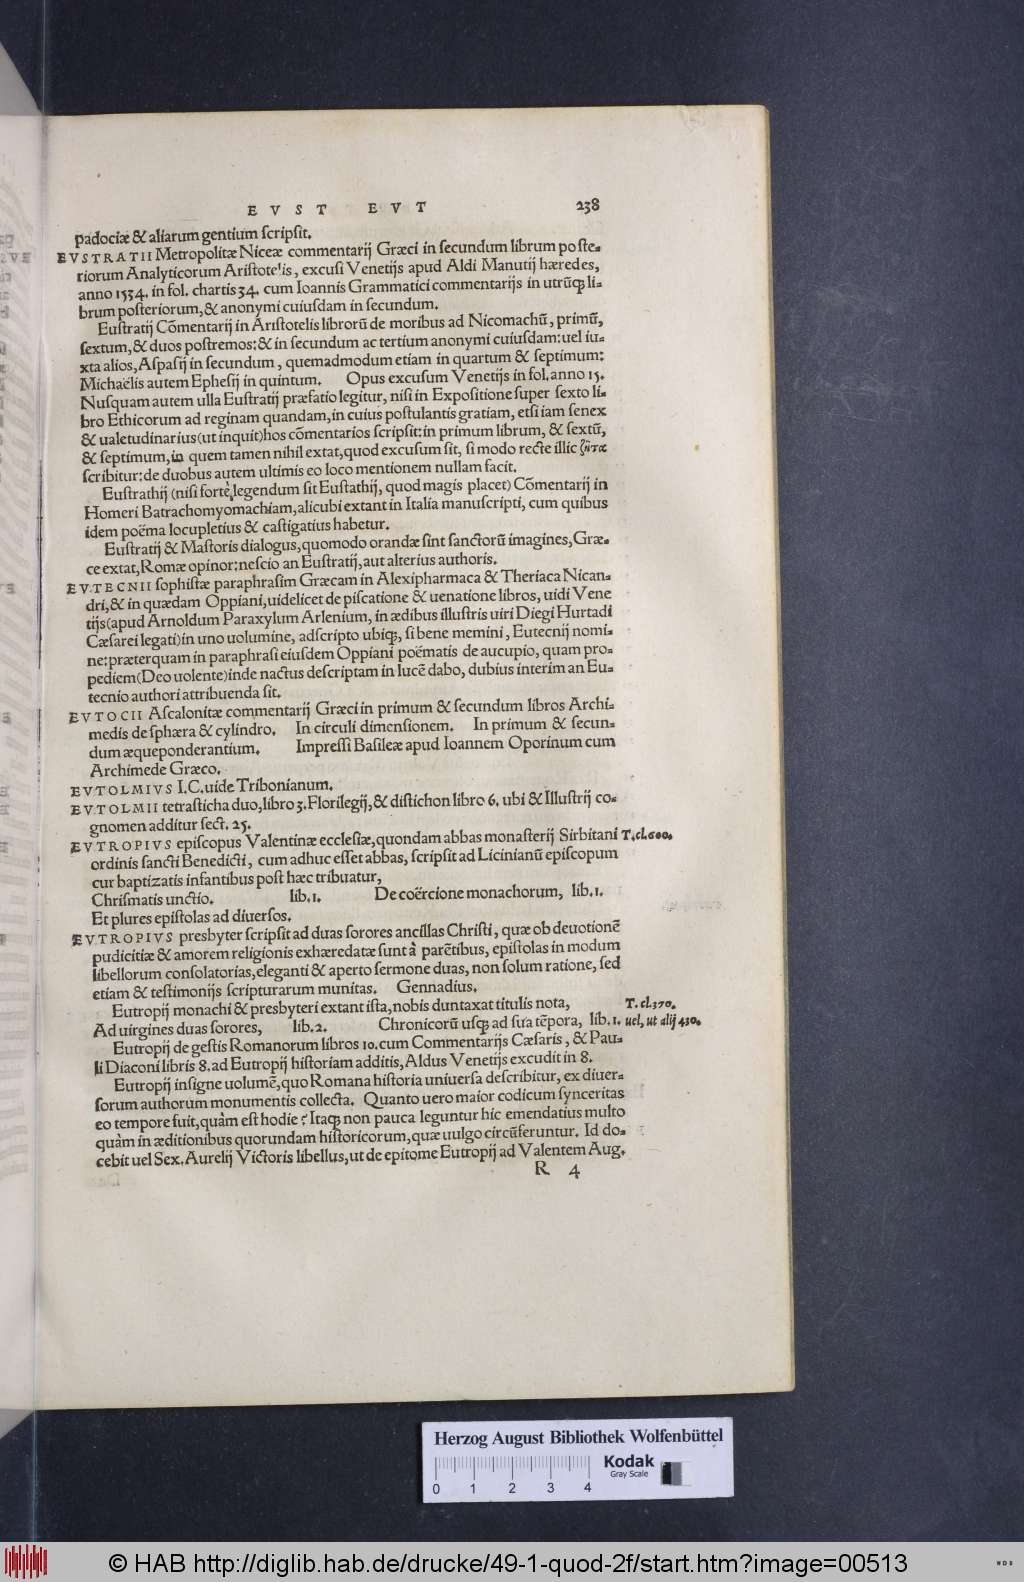 EVST EVT 238
padociæ & aliarum gentium scripsit.
EVSTRATII Metropolitæ Niceæ commentarij Græci in secundum librum poste-
riorum Analyticorum Aristotelis, excusi Venetijs apud Aldi Manutij hæredes,
anno 1534. in fol. chartis 34. cum Ioannis Grammatici commentarijs in utrūq; li-
brum posteriorum, & anonymi cuiusdam in secundum.
Eustratij Cōmentarij in Aristotelis librorū de moribus ad Nicomachū, primū,
sextum, & duos postremos: & in secundum ac tertium anonymi cuiusdam: uel iu-
xta alios, Aspasij in secundum, quemadmodum etiam in quartum & septimum:
Michaëlis autem Ephesij in quintum. Opus excusum Venetijs in fol. anno 15.
Nusquam autem ulla Eustratij præfatio legitur, nisi in Expositione super sexto li-
bro Ethicorum ad reginam quandam, in cuius postulantis gratiam, etsi iam senex
& ualetudinarius (ut inquit) hos cōmentarios scripsit: in primum librum, & sextū,
& septimum, in quem tamen nihil extat, quod excusum sit, si modo recte illic ζῆτα
scribitur: de duobus autem ultimis eo loco mentionem nullam facit.
Eustrathij (nisi fortè legendum sit Eustathij, quod magis placet) Cōmentarij in
Homeri Batrachomyomachiam, alicubi extant in Italia manuscripti, cum quibus
idem poëma locupletius & castigatius habetur.
Eustratij & Mastoris dialogus, quomodo orandæ sint sanctorū imagines, Græ-
ce extat, Romæ opinor: nescio an Eustratij, aut alterius authoris.
EVTECNII sophistæ paraphrasim Græcam in Alexipharmaca & Theriaca Nican-
dri, & in quædam Oppiani, uidelicet de piscatione & uenatione libros, uidi Vene
tijs (apud Arnoldum Paraxylum Arlenium, in ædibus illustris uiri Diegi Hurtadi
Cæsarei legati) in uno uolumine, adscripto ubiq;, si bene memini, Eutecnij nomi-
ne: præterquam in paraphrasi eiusdem Oppiani poëmatis de aucupio, quam pro-
pediem (Deo uolente) inde nactus descriptam in lucē dabo, dubius interim an Eu-
tecnio authori attribuenda sit.
EVTOCII Ascalonitæ commentarij Græci in primum & secundum libros Archi-
medis de sphæra & cylindro. In circuli dimensionem. In primum & secun-
dum æqueponderantium. Impressi Basileæ apud Ioannem Oporinum cum
Archimede Græco.
EVTOLMIVS I.C. uide Tribonianum.
EVTOLMII tetrasticha duo, libro 3. Florilegij, & distichon libro 6. ubi & Illustrij co-
gnomen additur sect. 25.
EVTROPIVS episcopus Valentinæ ecclesiæ, quondam abbas monasterij Sirbitani T. cl. 600.
ordinis sancti Benedicti, cum adhuc esset abbas, scripsit ad Licinianū episcopum
cur baptizatis infantibus post hæc tribuatur,
Chrismatis unctio. lib. 1. De coërcione monachorum, lib. 1.
Et plures epistolas ad diuersos.
EVTROPIVS presbyter scripsit ad duas sorores ancillas Christi, quæ ob deuotionē
pudicitiæ & amorem religionis exhæredatæ sunt à parētibus, epistolas in modum
libellorum consolatorias, eleganti & aperto sermone duas, non solum ratione, sed
etiam & testimonijs scripturarum munitas. Gennadius.
Eutropij monachi & presbyteri extant ista, nobis duntaxat titulis nota, T. cl. 370.
Ad uirgines duas sorores, lib. 2. Chronicorū usq; ad sua tēpora, lib. 1. uel, ut alij 430.
Eutropij de gestis Romanorum libros 10. cum Commentarijs Cæsaris, & Pau-
li Diaconi libris 8. ad Eutropij historiam additis, Aldus Venetijs excudit in 8.
Eutropij insigne uolumē, quo Romana historia uniuersa describitur, ex diuer-
sorum authorum monumentis collecta. Quanto uero maior codicum synceritas
eo tempore fuit, quàm est hodie? Itaq; non pauca leguntur hic emendatius multo
quàm in æditionibus quorundam historicorum, quæ uulgo circūferuntur. Id do-
cebit uel Sex. Aurelij Victoris libellus, ut de epitome Eutropij ad Valentem Aug.
R 4
Herzog August Bibliothek Wolfenbüttel
Kodak
Gray Scale
0 1 2 3 4
© HAB http://diglib.hab.de/drucke/49-1-quod-2f/start.htm?image=00513